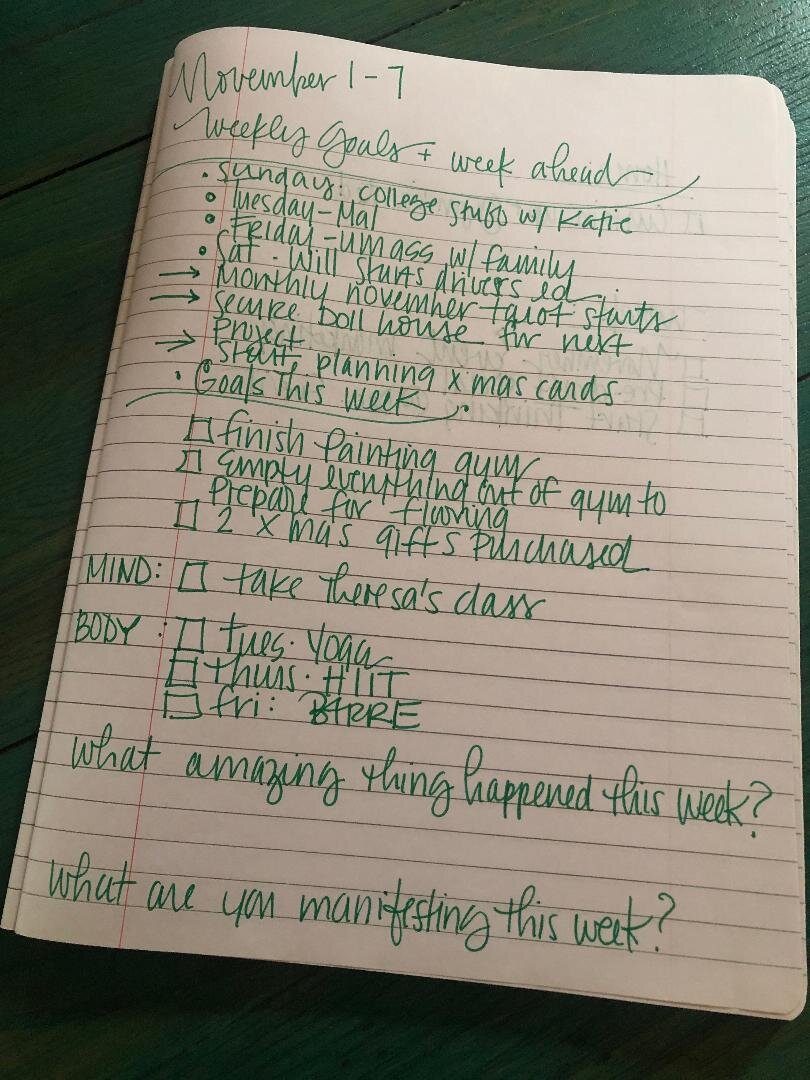 November 1-7
Weekly Goals + week ahead
• Sunday: college stuff w/ Katie
• Tuesday - Mal
• Friday - umass w/ family
• Sat - Will starts drivers ed.
→ Monthly november tarot starts
→ secure doll house for next
Project
→ start planning xmas cards
• Goals This week.
☐ finish painting gym
☐ Empty everything out of gym to
prepare for flooring
☐ 2 xmas gifts purchased
MIND: ☐ take theresa's class
BODY: ☐ tues. Yoga
☐ thurs. HIIT
☐ fri: BARRE
What amazing thing happened this week?
What are you manifesting this week?